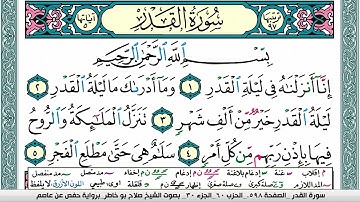 سُورَةُ القَدْرِ
بِسْمِ ٱللَّهِ ٱلرَّحْمَٰنِ ٱلرَّحِيمِ
إِنَّآ أَنزَلْنَٰهُ فِى لَيْلَةِ ٱلْقَدْرِ ١ وَمَآ أَدْرَىٰكَ مَا لَيْلَةُ ٱلْقَدْرِ ٢
لَيْلَةُ ٱلْقَدْرِ خَيْرٌ مِّنْ أَلْفِ شَهْرٍ ٣ تَنَزَّلُ ٱلْمَلَٰٓئِكَةُ وَٱلرُّوحُ
فِيهَا بِإِذْنِ رَبِّهِم مِّن كُلِّ أَمْرٍ ٤ سَلَٰمٌ هِىَ حَتَّىٰ مَطْلَعِ ٱلْفَجْرِ
سورة القدر الصفحة ٥٩٨ - الحزب ٦٠ الجزء ٣٠ بصوت الشيخ صلاح بو خاطر برواية حفص عن عاصم